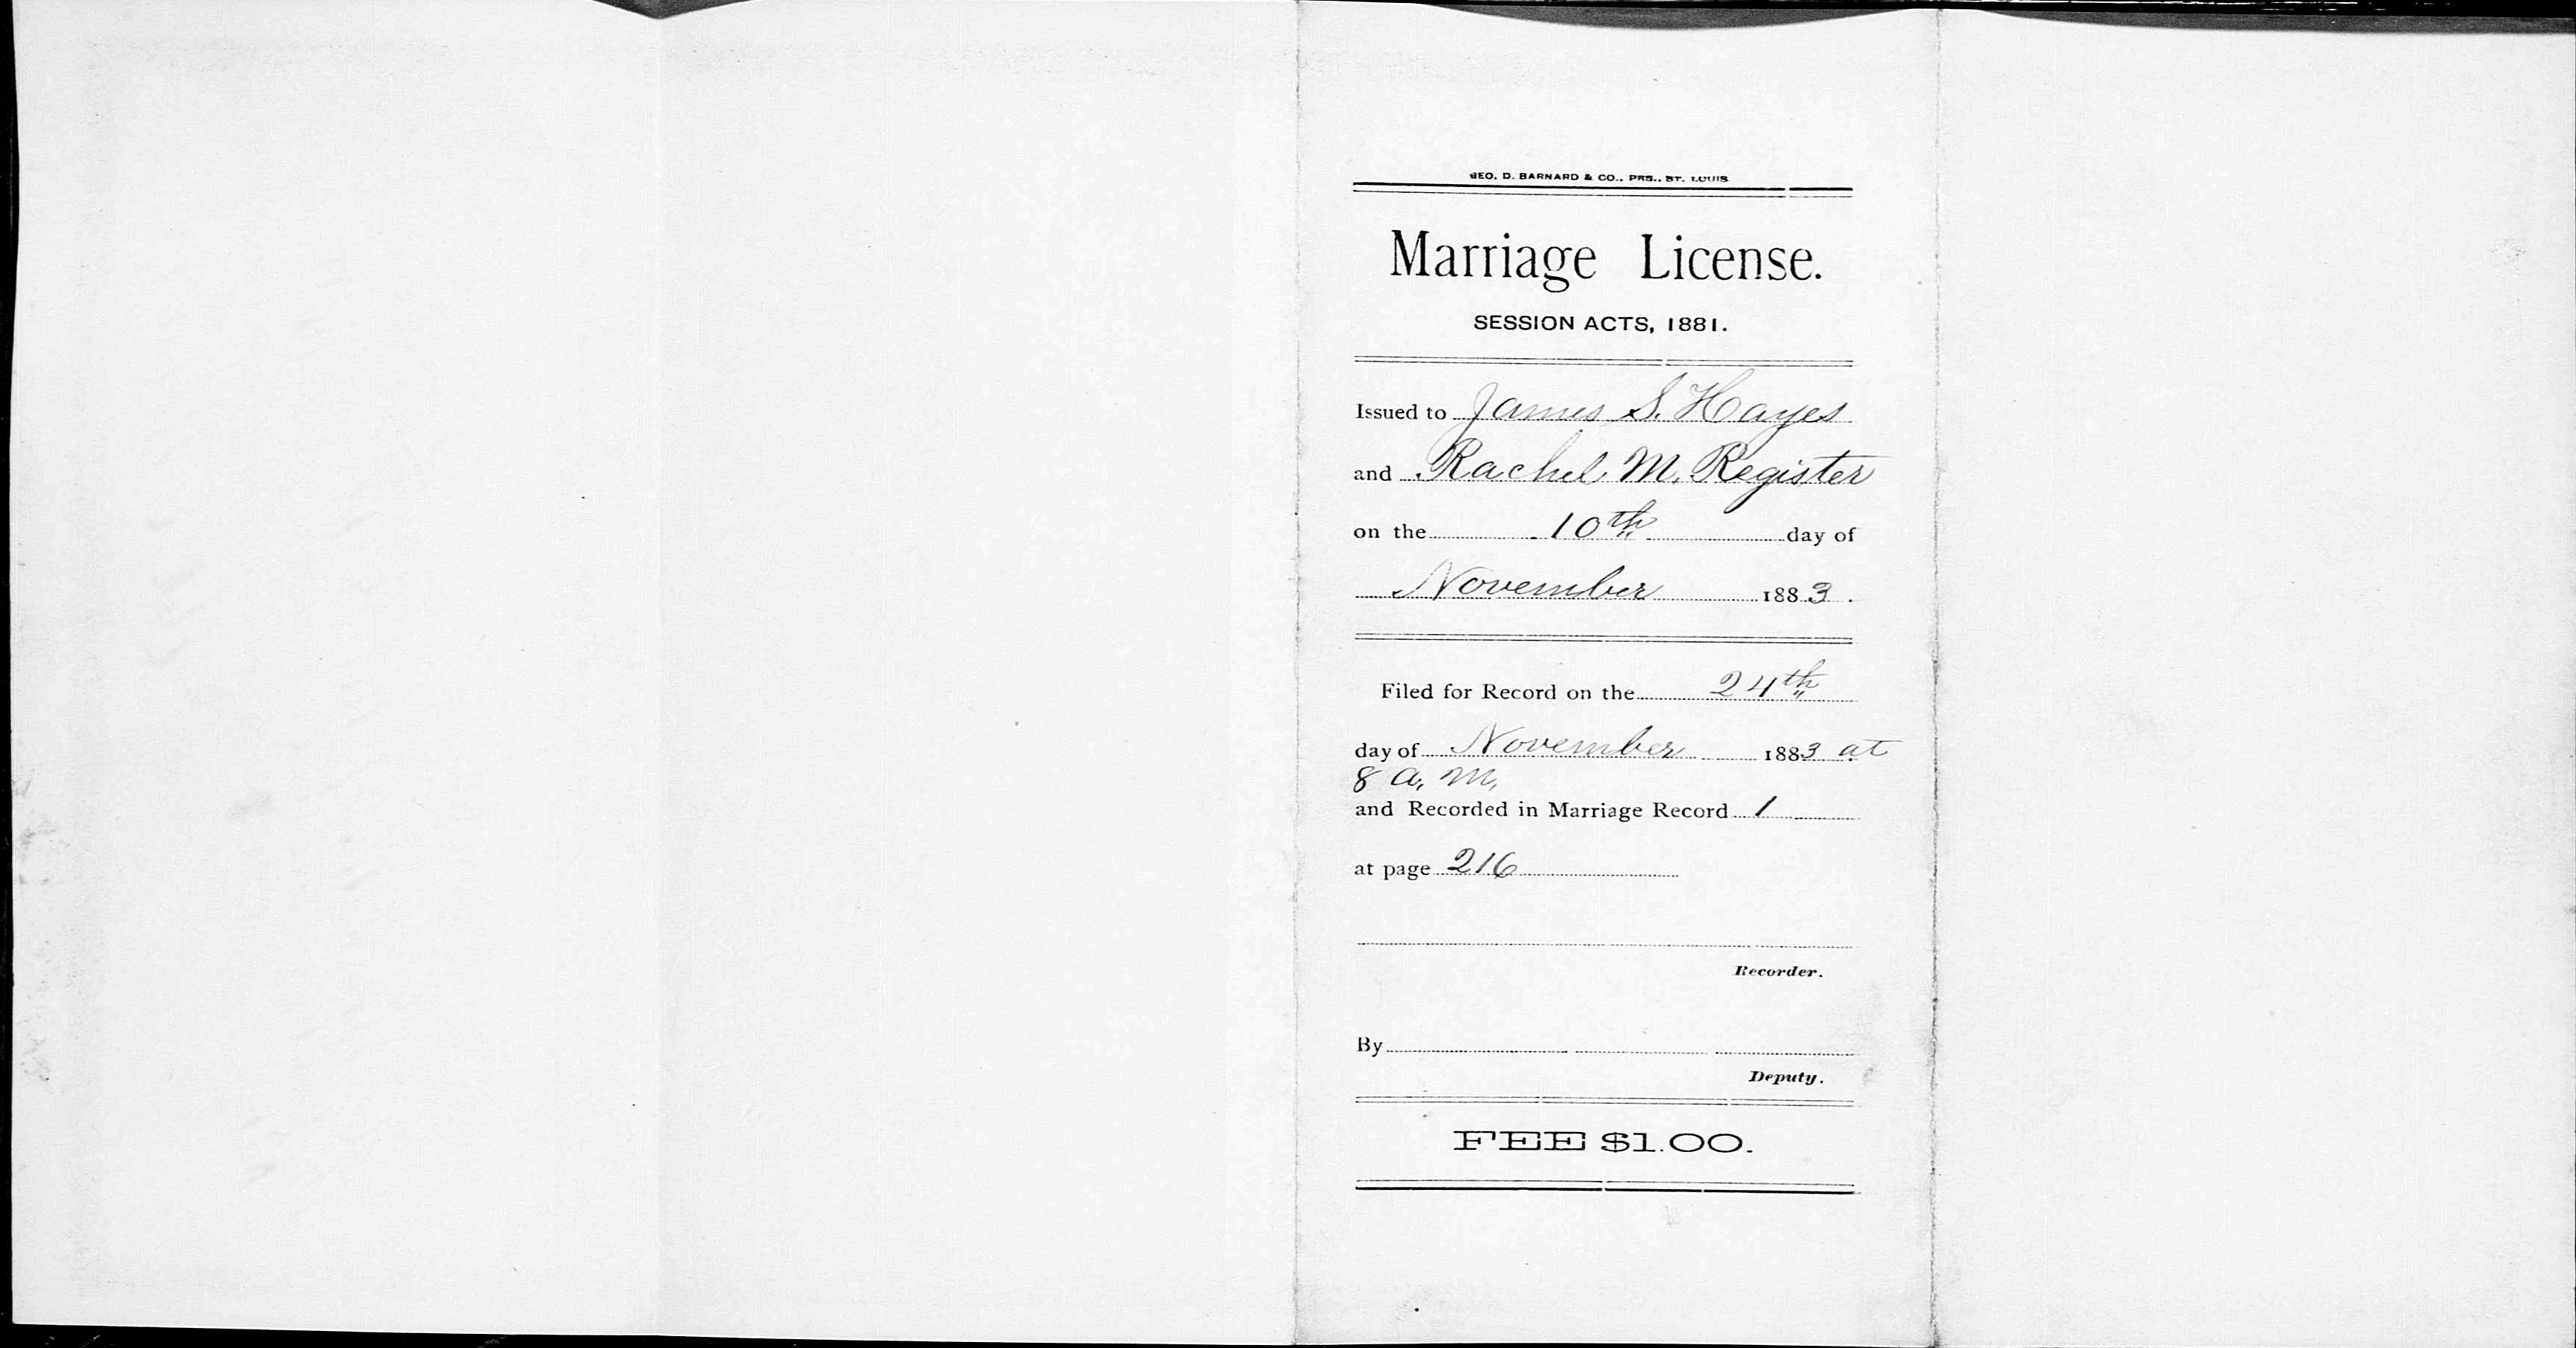 GEO. D. BARNARD & CO., PRS., ST. LOUIS
Marriage License.
SESSION ACTS, 1881.
Issued to James S. Hayes
and Rachel M. Register
on the 10th day of
November 1883.
Filed for Record on the 24th
day of November 1883 at
8 a. m.
and Recorded in Marriage Record 1
at page 216
Recorder.
By
Deputy.
FEE $1.00.